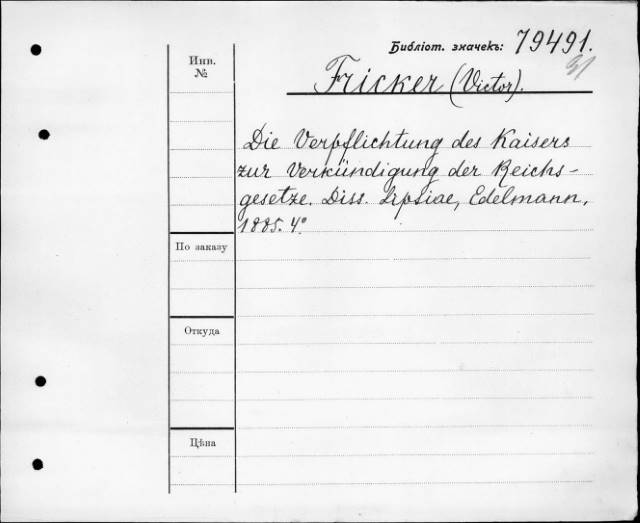 Библіот. значекъ: 79491.
Инв.
№
Fricker (Victor).
Die Verpflichtung des Kaisers
zur Verkündigung der Reichs-
gesetze. Diss. Lipsiae, Edelmann,
1885. 4°
По заказу
Откуда
Цѣна